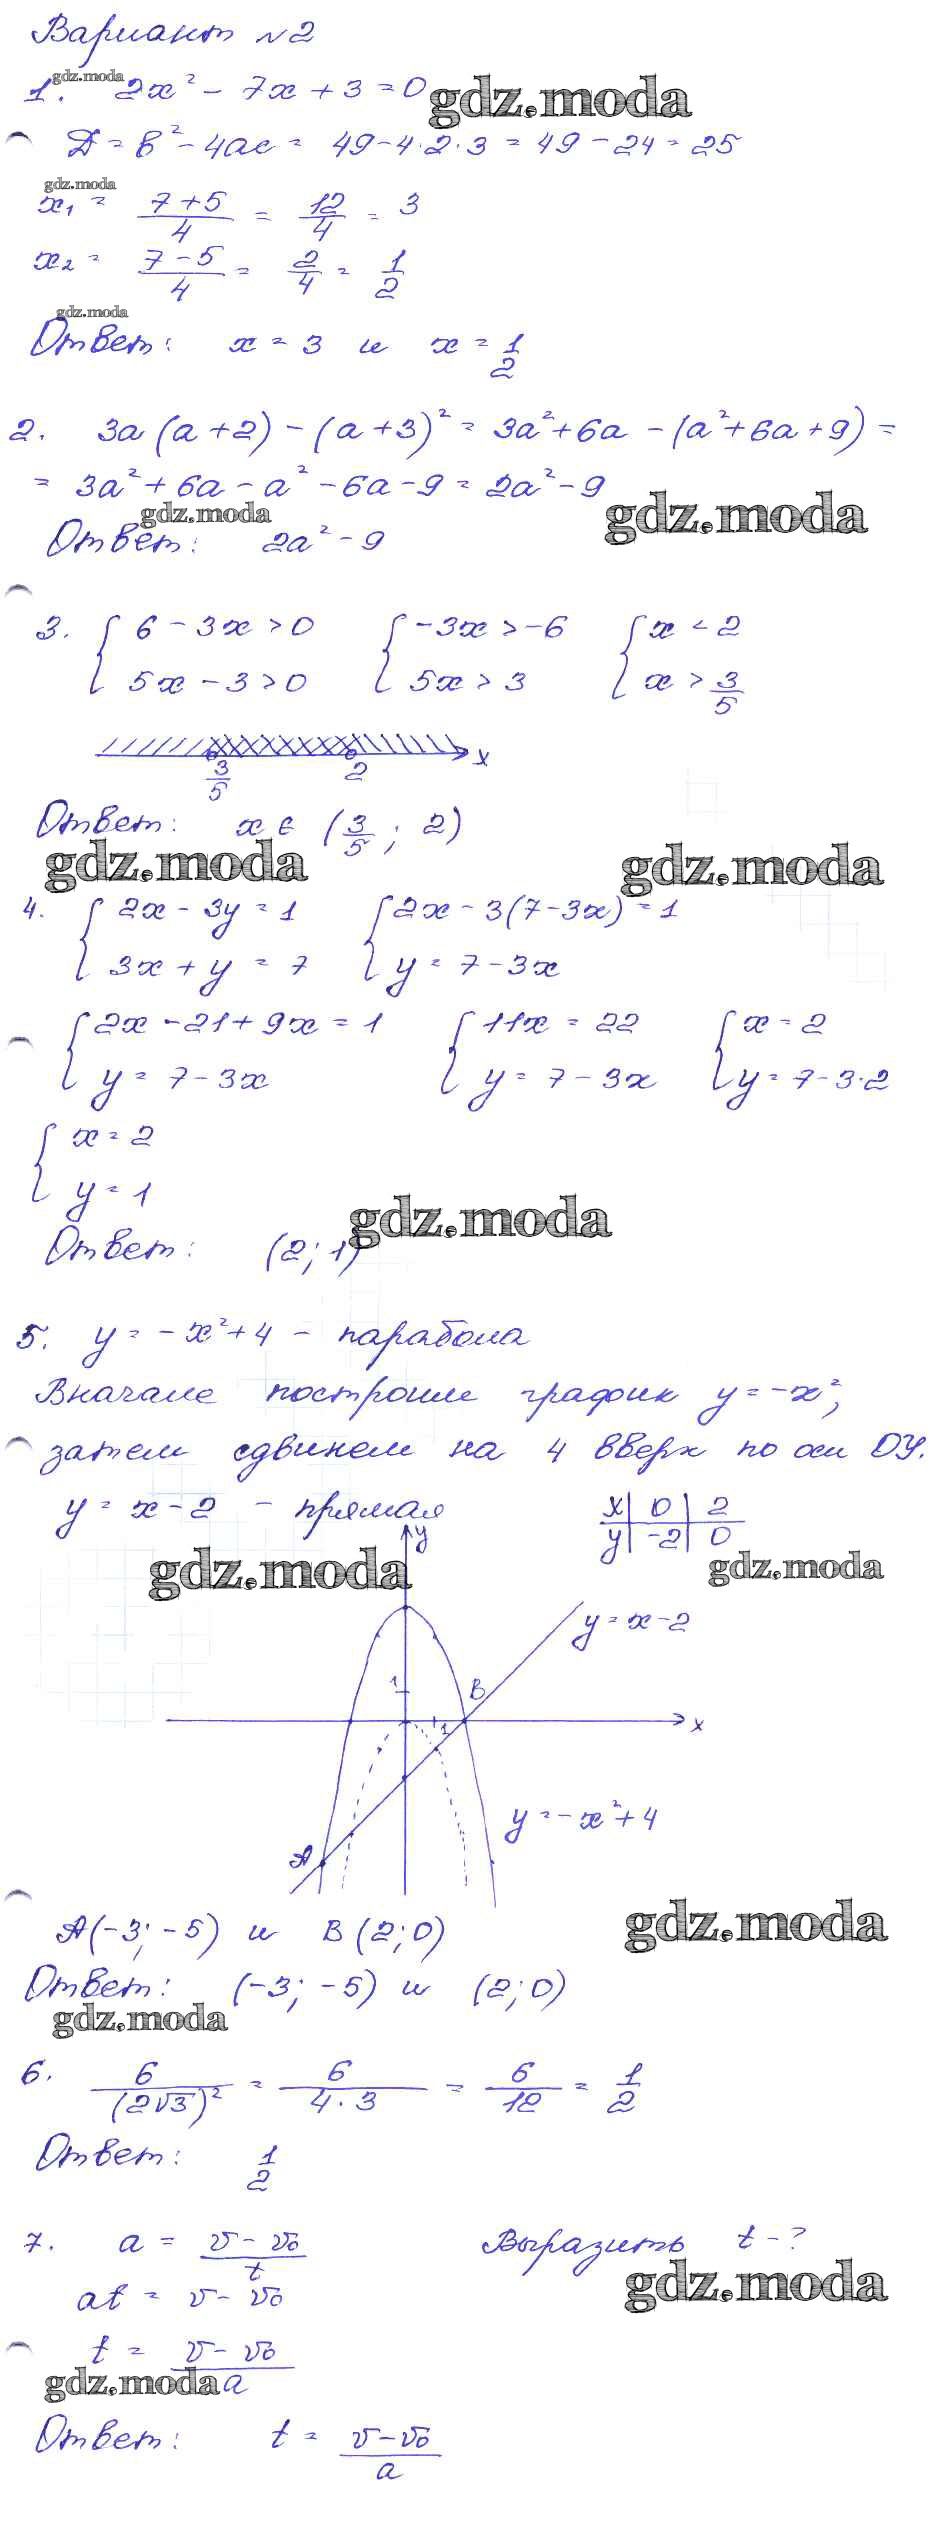 Вариант №2
gdz.moda
1. 2x² - 7x + 3 = 0
gdz.moda
D = b² - 4ac = 49 - 4·2·3 = 49 - 24 = 25
gdz.moda
x₁ = (7+5)/4 = 12/4 = 3
x₂ = (7-5)/4 = 2/4 = 1/2
gdz.moda
Ответ: x = 3 и x = 1/2
2. 3a(a+2) - (a+3)² = 3a² + 6a - (a² + 6a + 9) =
= 3a² + 6a - a² - 6a - 9 = 2a² - 9
gdz.moda
gdz.moda
Ответ: 2a² - 9
3. { 6 - 3x > 0 { -3x > -6 { x < 2
5x - 3 > 0 5x > 3 x > 3/5
x
3/5 2
Ответ: x ∈ (3/5; 2)
gdz.moda
gdz.moda
4. { 2x - 3y = 1 { 2x - 3(7-3x) = 1
3x + y = 7 y = 7 - 3x
{ 2x - 21 + 9x = 1 { 11x = 22 { x = 2
y = 7 - 3x y = 7 - 3x y = 7 - 3·2
{ x = 2
y = 1
gdz.moda
Ответ: (2; 1)
5. y = -x² + 4 - парабола
Вначале построим график y = -x²,
затем сдвинем на 4 вверх по оси OY.
y = x - 2 - прямая
x | 0 | 2
y | -2 | 0
y
gdz.moda
gdz.moda
y = x - 2
1
B
1
x
y = -x² + 4
A
A(-3; -5) и B(2; 0)
gdz.moda
Ответ: (-3; -5) и (2; 0)
gdz.moda
6. 6/(2√3)² = 6/(4·3) = 6/12 = 1/2
Ответ: 1/2
7. a = (v - v₀)/t Выразить t - ?
gdz.moda
at = v - v₀
t = (v - v₀)/a
gdz.moda
Ответ: t = (v - v₀)/a